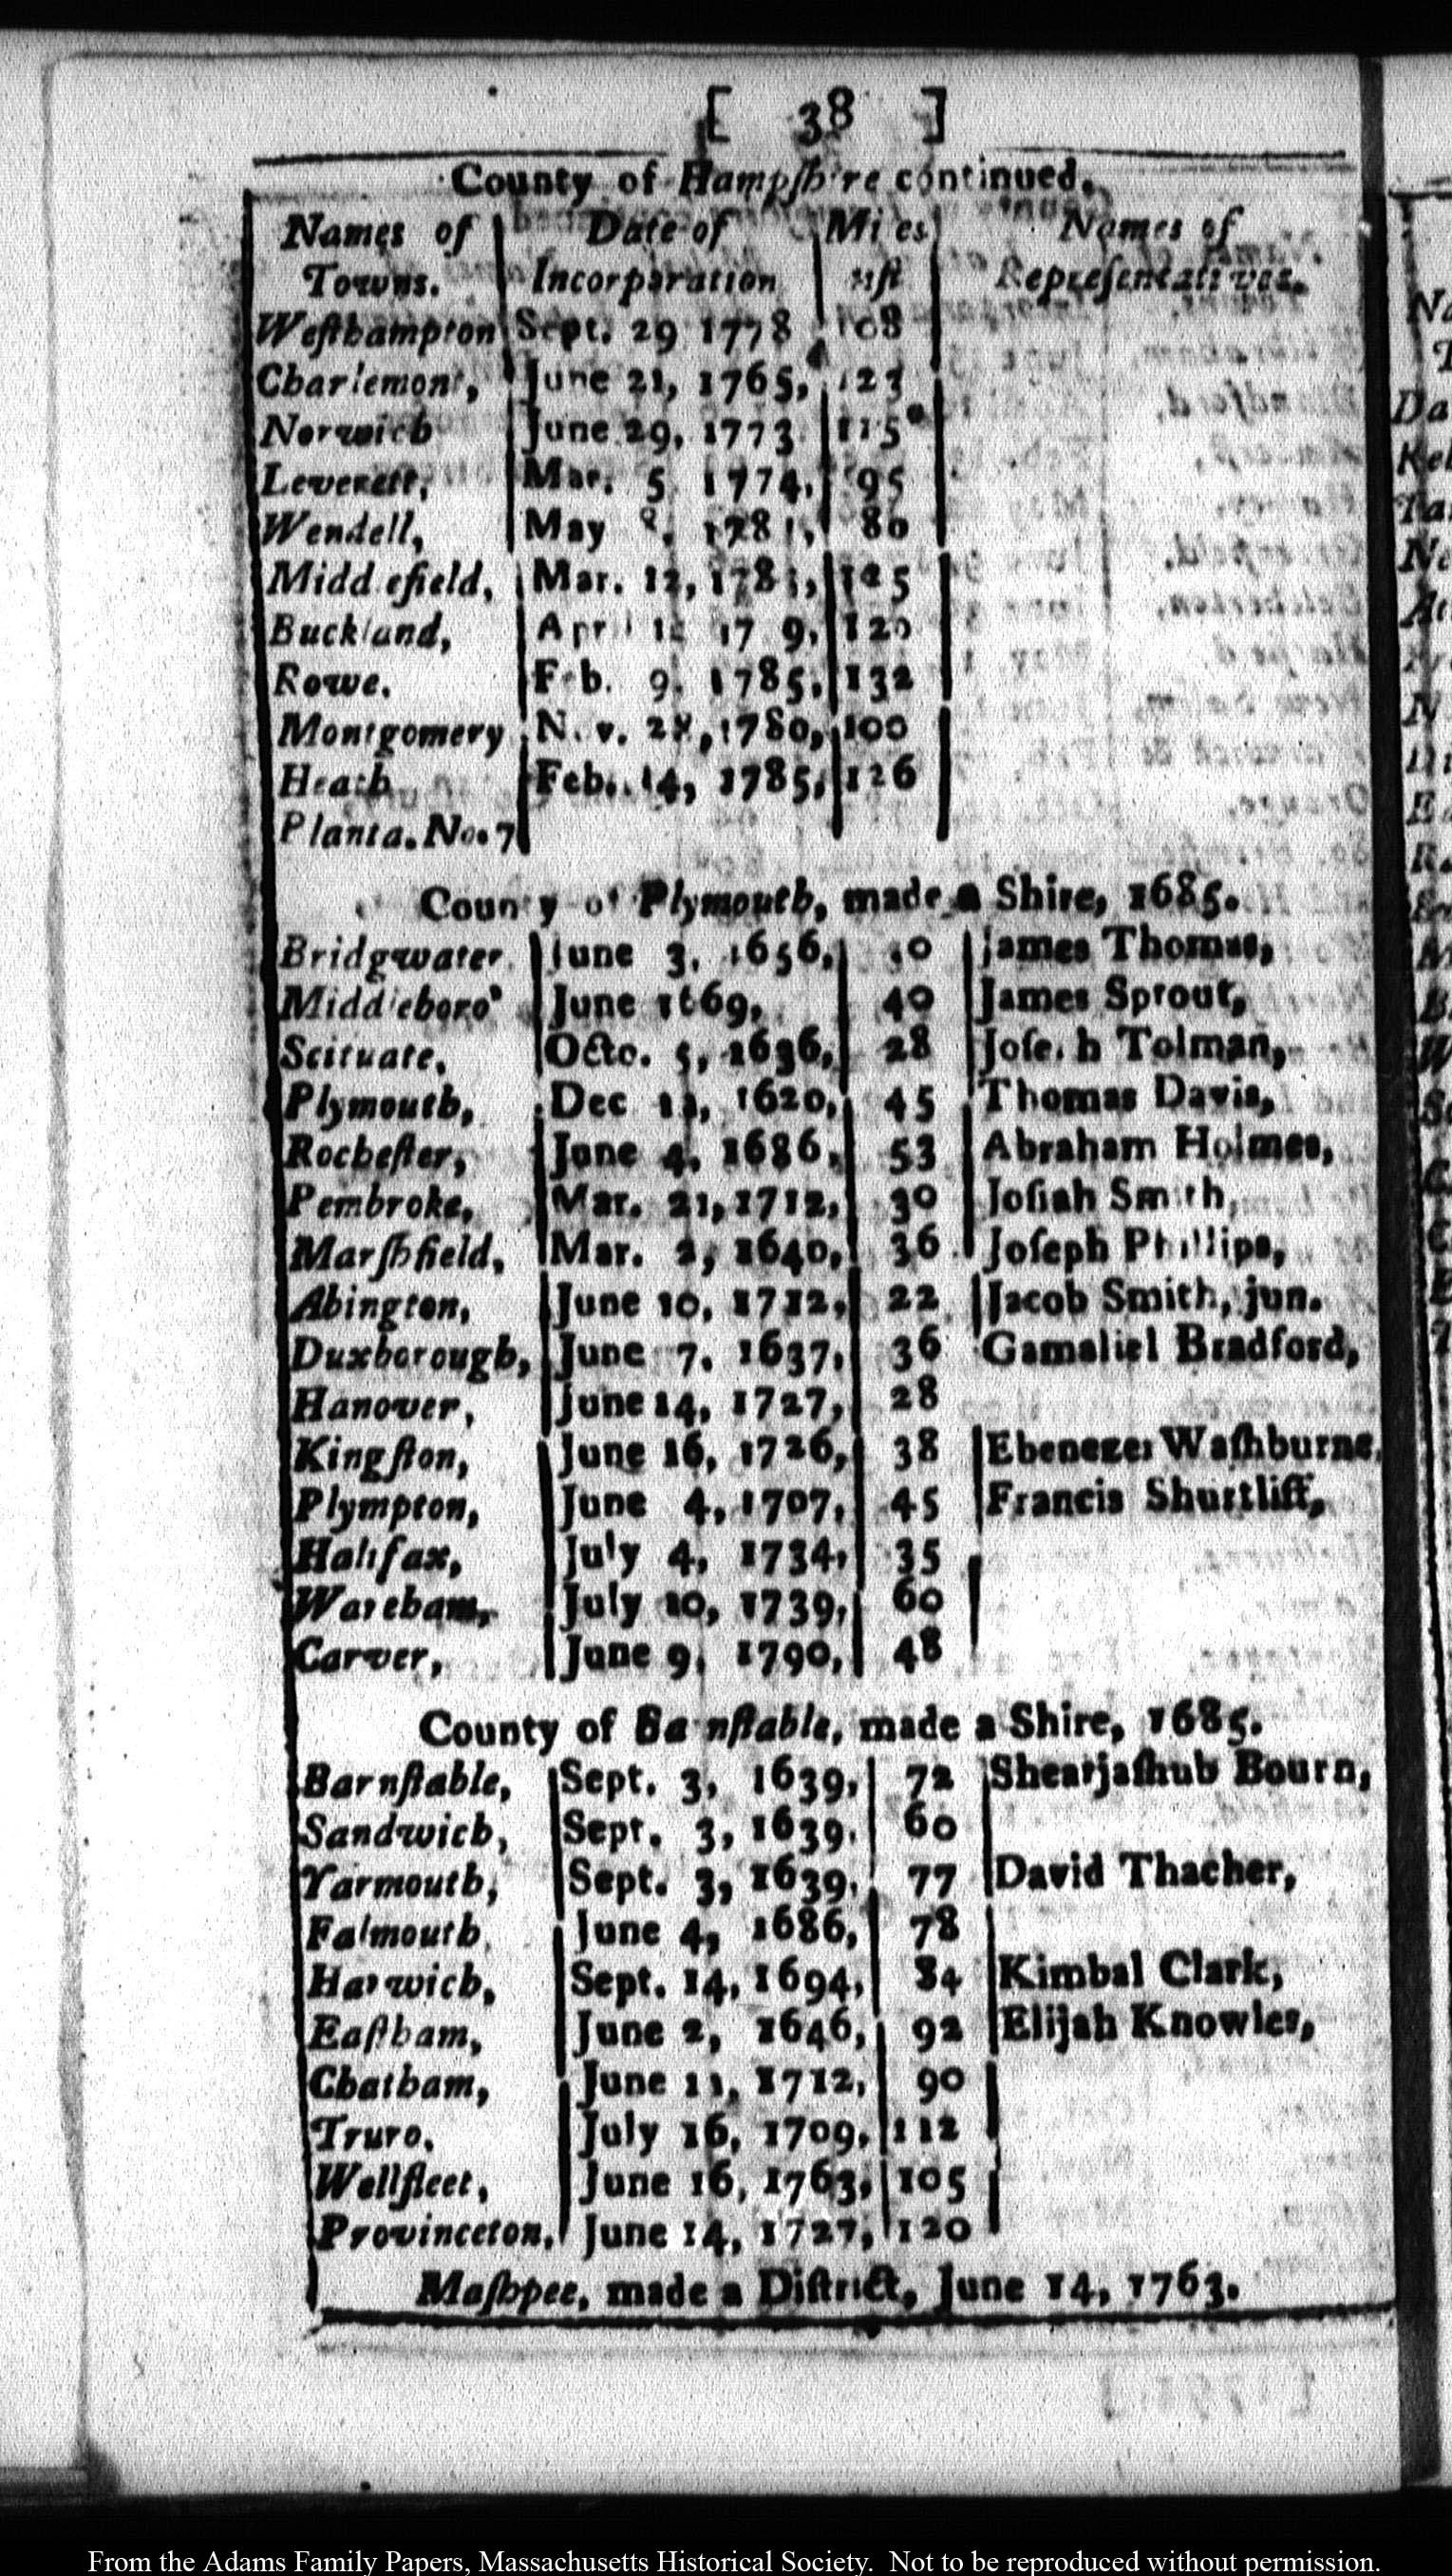 [ 38 ]
County of Hampſhire continued.
Names of | Date of | Mi es | Names of
Towns. | Incorporation | diſt | Repreſentatives.
Weſthampton | Sept. 29 1778 | 108
Charlemont, | June 21, 1765, | 123
Norwich | June 29, 1773 | 115
Leverett, | Mar. 5 1774, | 95
Wendell, | May 8, 1781, | 80
Midd efield, | Mar. 12, 1783, | 125
Buckland, | Apr 17 9, | 120
Rowe. | Feb. 9, 1785, | 132
Montgomery | Nov. 28, 1780, | 100
Heath | Feb. 14, 1785, | 126
Planta. No. 7
County of Plymouth, made a Shire, 1685.
Bridgwater | June 3, 1656, | James Thomas,
Middleboro' | June 1669, | 40 | James Sprout,
Scituate, | Octo. 5, 1636, | 28 | Joſeph Tolman,
Plymouth, | Dec 1620, | 45 | Thomas Davis,
Rocheſter, | June 4, 1686, | 53 | Abraham Holmes,
Pembroke, | Mar. 21, 1712, | 30 | Joſiah Smith,
Marſhfield, | Mar. 2, 1640, | 36 | Joſeph Phillips,
Abington, | June 10, 1712, | 22 | Jacob Smith, jun.
Duxborough, | June 7, 1637, | 36 | Gamaliel Bradford,
Hanover, | June 14, 1727, | 28
Kingſton, | June 16, 1726, | 38 | Ebenezer Waſhburne,
Plympton, | June 4, 1707, | 45 | Francis Shurtliff,
Halifax, | July 4, 1734, | 35
Wareham, | July 10, 1739, | 60
Carver, | June 9, 1790, | 48
County of Barnſtable, made a Shire, 1685.
Barnſtable, | Sept. 3, 1639, | 72 | Shearjaſhub Bourn,
Sandwich, | Sept. 3, 1639, | 60
Yarmouth, | Sept. 3, 1639, | 77 | David Thacher,
Falmouth, | June 4, 1686, | 78
Harwich, | Sept. 14, 1694, | 84 | Kimbal Clark,
Eaſtham, | June 2, 1646, | 92 | Elijah Knowles,
Chatham, | June 11, 1712, | 90
Truro, | July 16, 1709, | 112
Wellfleet, | June 16, 1763, | 105
Provinceton, | June 14, 1727, | 120
Maſhpee, made a Diſtrict, June 14, 1763.
From the Adams Family Papers, Massachusetts Historical Society. Not to be reproduced without permission.